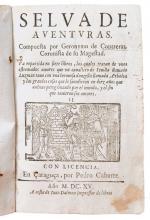 SELVA DE
AVENTURAS.
Compuesta por Geronymo de Contreras,
Coronista de su Magestad.
Va repartida en siete libros, los quales tratan de unos
estremados amores que un cavallero de Sevilla llamado
Luzman tuvo con una hermosa donzella llamada Arbolea
y las grandes cosas que le sucedieron en diez años que
anduvo peregrinando por el mundo, y el fin
que tuvieron sus amores.
CON LICENCIA.
En Çaragoça, por Pedro Cabarte.
Año M. DC. XV.
A costa de Juan